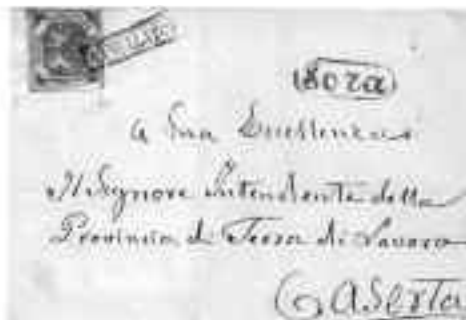 Sora
A Sua Eccellenza
Il Signore Intendente della
Provincia di Terra di Lavoro
Caserta